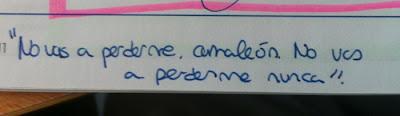 "No vas a perderme, camaleón. No vas
a perderme nunca".